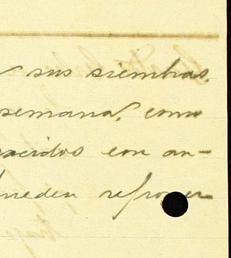 sus siembras,
semana, como
nacidos con an-
pueden refrover